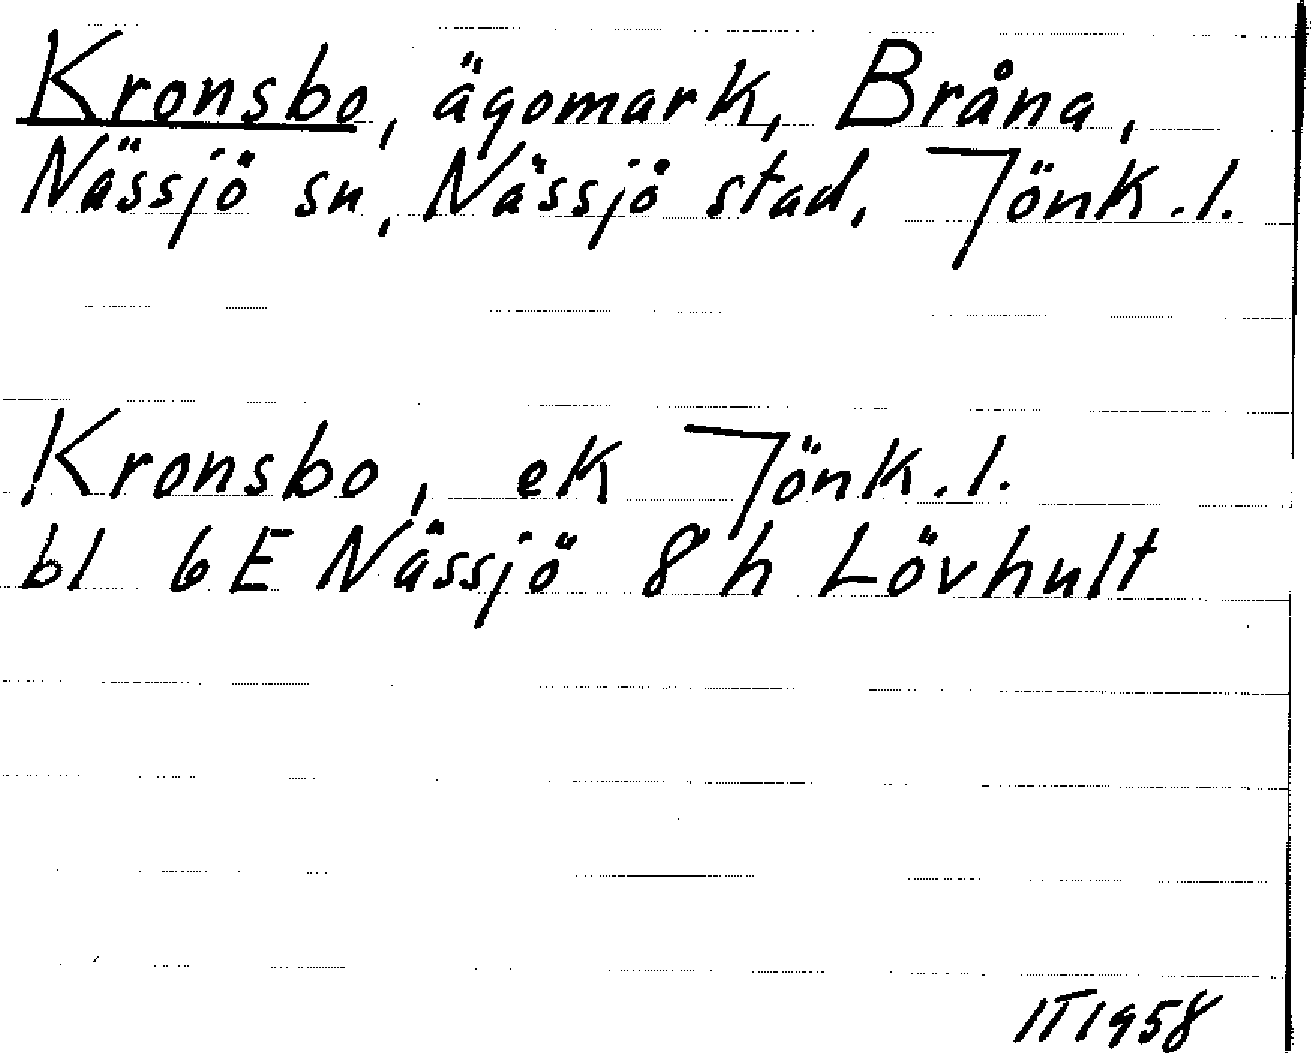 Kronsbo, ägomark, Bråna,
Nässjö sn, Nässjö stad, Jönk.l.
Kronsbo, ek Jönk.l.
bl 6E Nässjö 8h Lövhult
IT1958